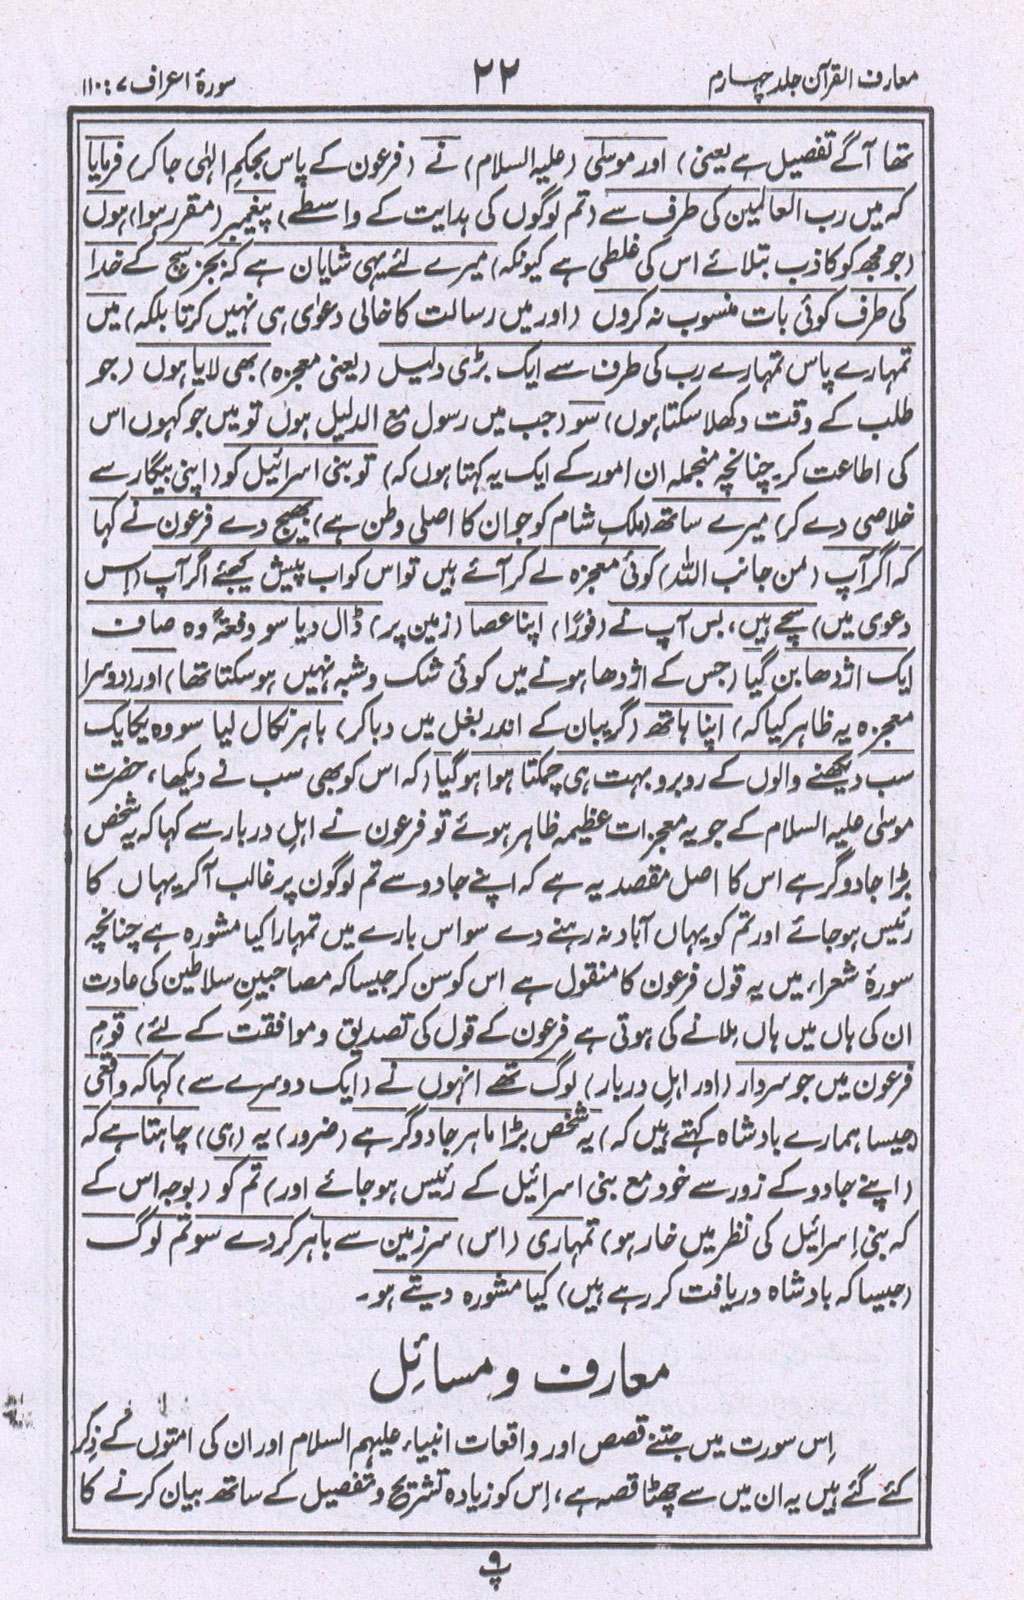 معارف القرآن جلد چہارم
۲۲
سورۂ اعراف ۷ : ۱۱۰
تھا آگے تفصیل ہے یعنی) اور موسٰی (علیہ السلام) نے (فرعون کے پاس بحکمِ الہٰی جا کر) فرمایا
کہ میں رب العالمین کی طرف سے (تم لوگوں کی ہدایت کے واسطے) پیغمبر (مقرر ہوا) ہوں
(جو مجھ کو کاذب بتلائے اس کی غلطی ہے کیونکہ) میرے لئے یہی شایان ہے کہ بجز سچ کے خدا
کی طرف کوئی بات منسوب نہ کروں (اور میں رسالت کا خالی دعوٰی ہی نہیں کرتا بلکہ) میں
تمہارے پاس تمہارے رب کی طرف سے ایک بڑی دلیل (یعنی معجزہ) بھی لایا ہوں (جو
طلب کے وقت دکھلا سکتا ہوں) سو (جب میں رسول مع الدلیل ہوں تو میں جو کہوں اس
کی اطاعت کر چنانچہ منجملہ ان امور کے ایک یہ کہتا ہوں کہ) تو بنی اسرائیل کو (اپنی بیگار سے
خلاصی دے کر) میرے ساتھ (ملکِ شام کو جو ان کا اصلی وطن ہے) بھیج دے فرعون نے کہا
کہ اگر آپ (من جانب اللہ) کوئی معجزہ لے کر آئے ہیں تو اس کو اب پیش کیجئے اگر آپ (اِس
دعوی میں) سچے ہیں، بس آپ نے (فورًا) اپنا عصا (زمین پر) ڈال دیا سو دفعۃً وہ صاف
ایک اژدھا بن گیا (جس کے اژدھا ہونے میں کوئی شک و شبہ نہیں ہو سکتا تھا) اور (دوسرا
معجزہ یہ ظاہر کیا کہ) اپنا ہاتھ (گریبان کے اندر بغل میں دبا کر) باہر نکال لیا سو وہ یکایک
سب دیکھنے والوں کے روبرو بہت ہی چمکتا ہوا ہو گیا (کہ اس کو بھی سب نے دیکھا، حضرت
موسٰی علیہ السلام کے جو یہ معجزات عظیمہ ظاہر ہوئے تو فرعون نے اہلِ دربار سے کہا کہ یہ شخص
بڑا جادوگر ہے اس کا اصل مقصد یہ ہے کہ اپنے جادو سے تم لوگون پر غالب آ کر یہاں کا
رئیس ہو جائے اور تم کو یہاں آباد نہ رہنے دے سو اس بارے میں تمہارا کیا مشورہ ہے چنانچہ
سورۂ شعراء میں یہ قول فرعون کا منقول ہے اس کو سن کر جیسا کہ مصاحبینِ سلاطین کی عادت
ان کی ہاں میں ہاں ملانے کی ہوتی ہے فرعون کے قول کی تصدیق و موافقت کے لئے) قومِ
فرعون میں جو سردار (اور اہلِ دربار) لوگ تھے انہوں نے (ایک دوسرے سے) کہا کہ واقعی
(جیسا ہمارے بادشاہ کہتے ہیں کہ) یہ شخص بڑا ماہر جادوگر ہے (ضرور) یہ (ہی) چاہتا ہے کہ
(اپنے جادو کے زور سے خود مع بنی اسرائیل کے رئیس ہو جائے اور) تم کو (بوجہ اس کے
کہ بنی اِسرائیل کی نظر میں خار ہو) تمہاری (اس) سرزمین سے باہر کر دے سو تم لوگ
(جیسا کہ بادشاہ دریافت کر رہے ہیں) کیا مشورہ دیتے ہو۔
معارف و مسائل
اِس سورت میں جتنے قصص اور واقعات انبیاء علیہم السلام اور ان کی امتوں کے ذِکر
کئے گئے ہیں یہ ان میں سے چھٹا قصہ ہے، اِس کو زیادہ تشریح و تفصیل کے ساتھ بیان کرنے کا
پ ۹